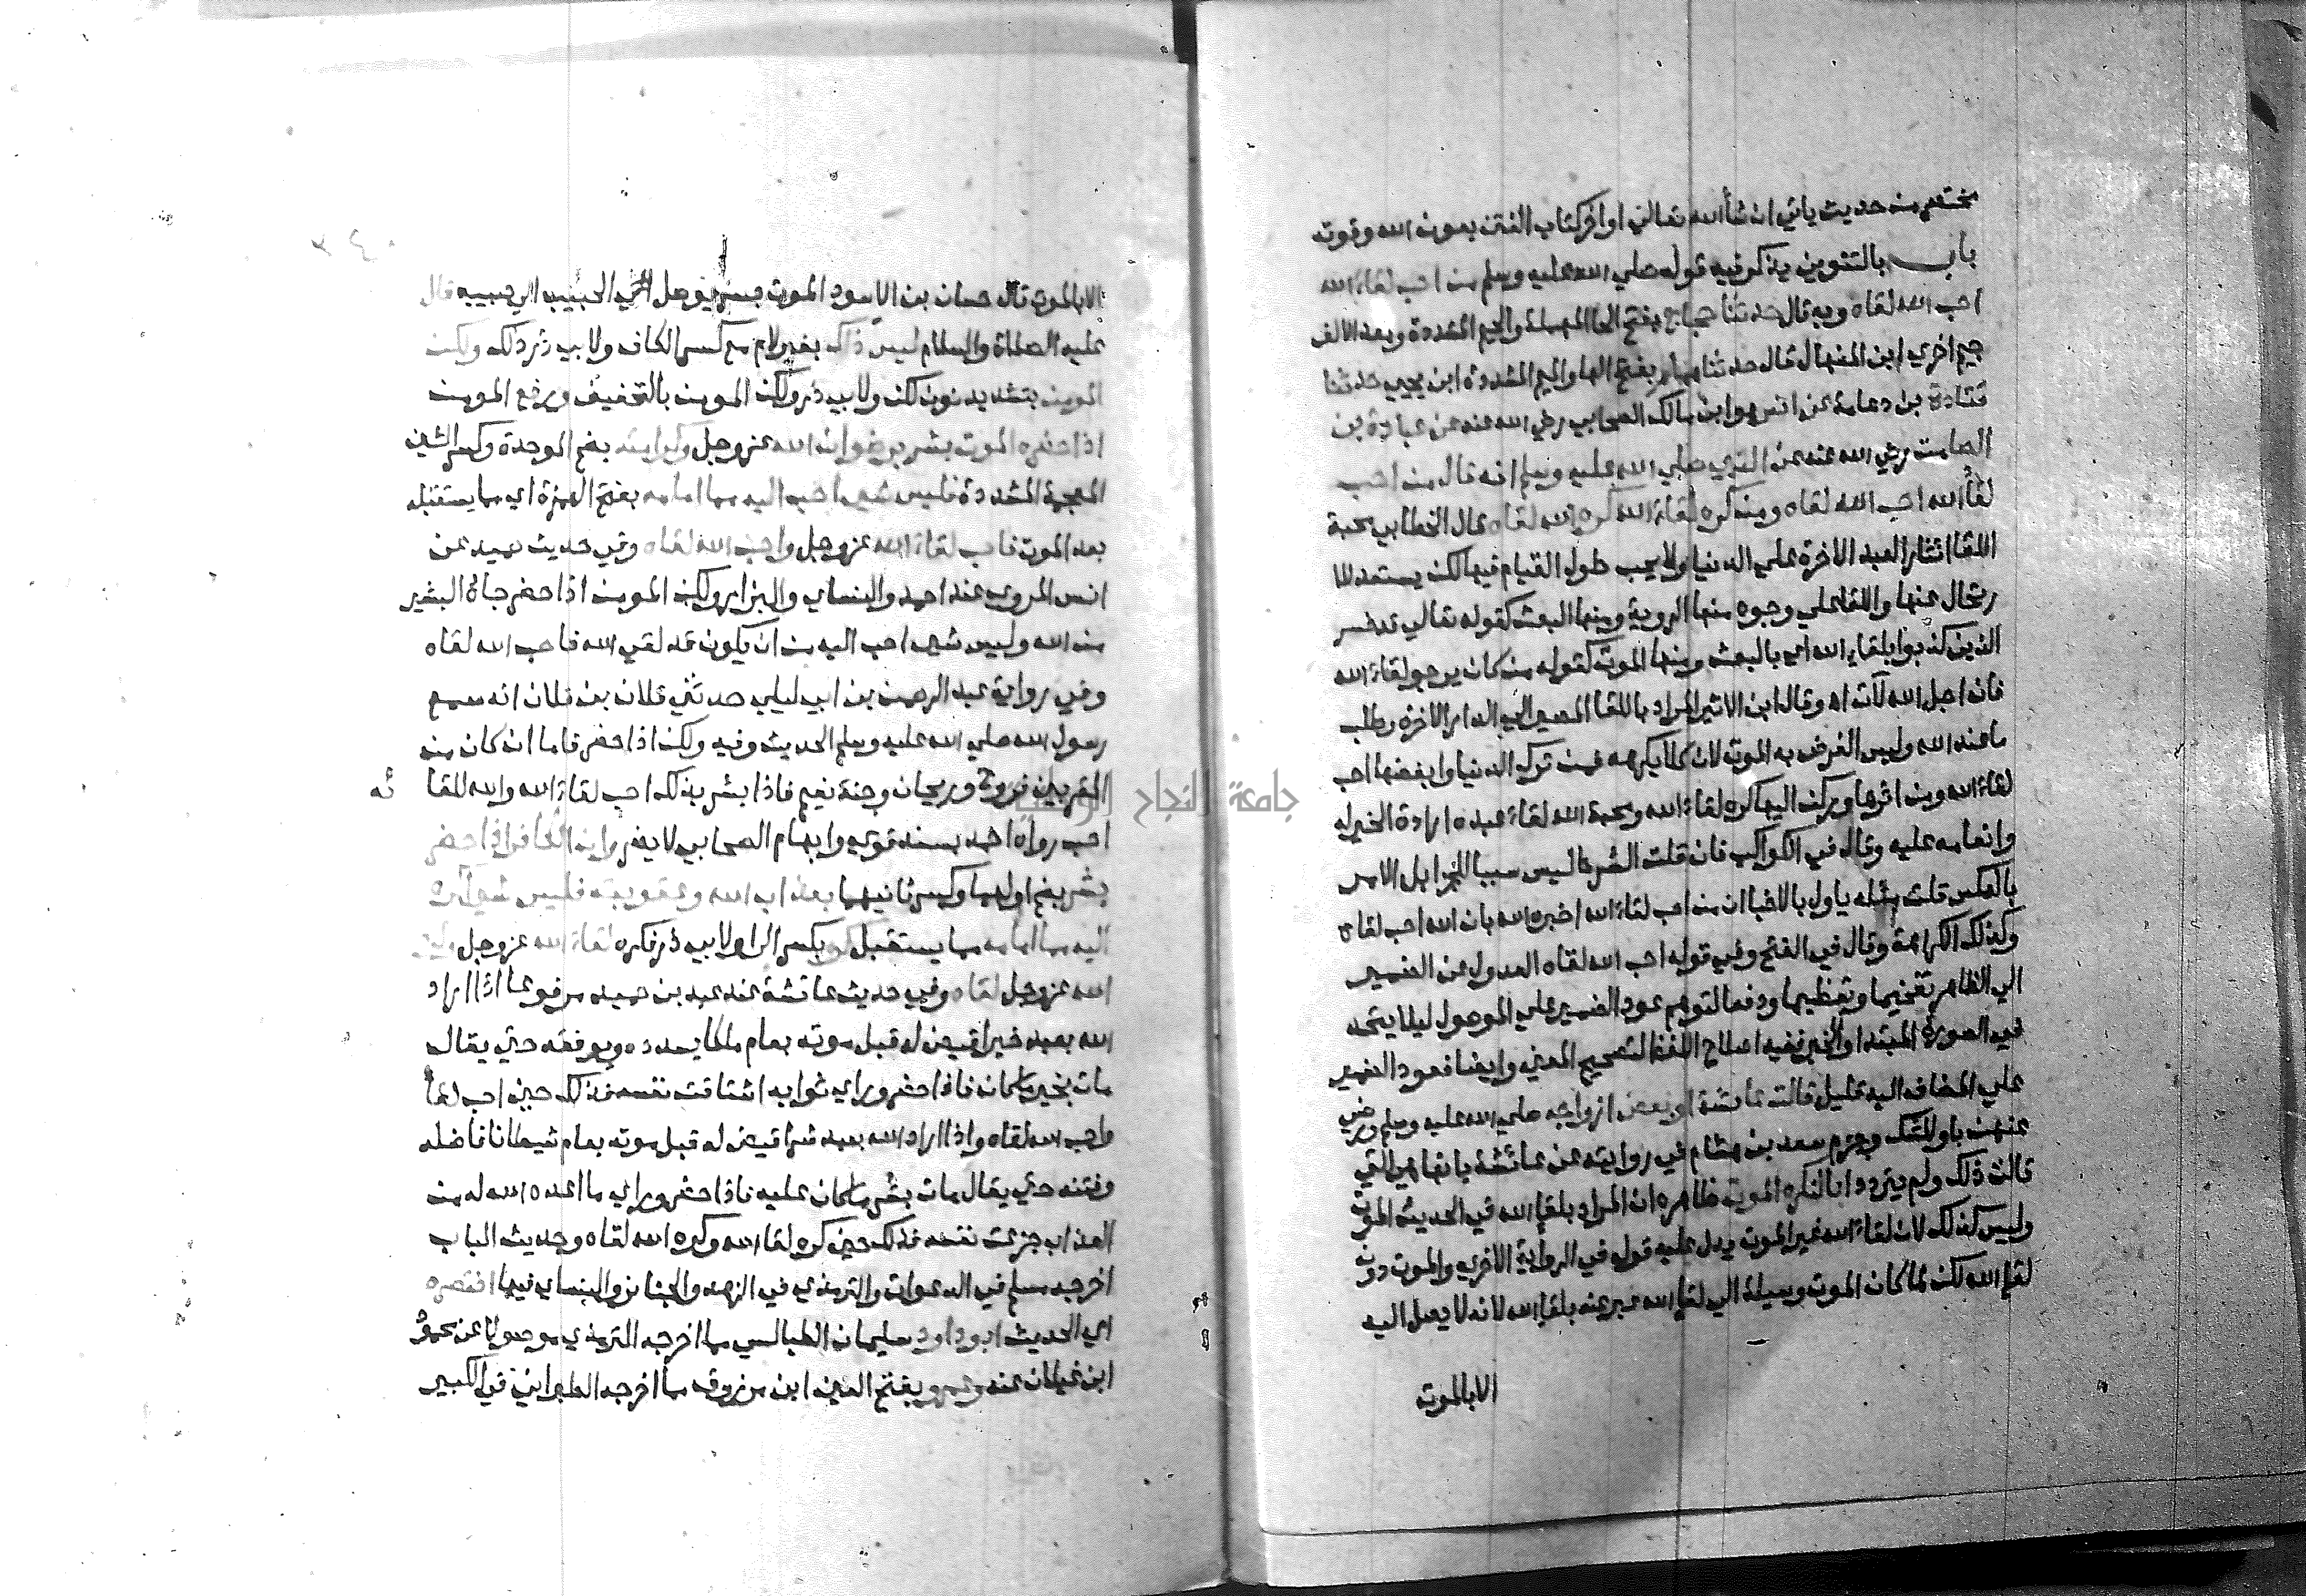 مختصر من حديث ياتي ان شأ الله تعالي اواخر كتاب الفتن بعون الله وقوته
باب بالتنوين يذكر فيه قوله صلي الله عليه وسلم من احب لقاء الله
احب الله لقاه وبه قال حدثنا حجاج بفتح الحا المهملة والجيم المشددة وبعد الالف
جيم اخري ابن المنهال قال حدثنا همام بفتح الها والميم المشددة ابن يحيي حدثنا
قتادة بن دعامة عن انس هو ابن مالك الصحابي رضي الله عنه عن عبادة بن
الصامت رضي الله عنه عن النبي صلي الله عليه وسلم انه قال من احب
لقأ الله احب الله لقاه ومن كره لقاء الله كره الله لقاه قال الخطابي محبة
اللقا ايثار العبد الاخرة علي الدنيا ولا يحب طول القيام فيها لكن يستعد للا
رتحال عنها واللقا علي وجوه منها الروية ومنها البعث كقوله تعالي قد خسر
الذين كذبوا بلقاء الله اي بالبعث ومنها الموت كقوله من كان يرجو لقاء الله
فان اجل الله لآت اه وقال ابن الاثير المراد باللقا المصير الي الدار الاخرة وطلب
ما عند الله وليس الغرض به الموت لان كلا يكرهه فمن ترك الدنيا وابغضها احب
لقاء الله ومن اثرها وركن اليها كره لقاء الله ومحبة الله لقاء عبده ارادة الخير له
وانعامه عليه وقال في الكواكب فان قلت الشرط ليس سببا للجزا بل الامر
بالعكس قلت مثله ياول بالاخبار ان من احب لقاء الله اخبره الله بان الله احب لقاه
وكذلك الكراهة وقال في الفتح وفي قوله احب الله لقاه العدول عن الضمير
الي الظاهر تفخيما وتعظيما ودفعا لتوهم عود الضمير علي الموصول ليلا يتحد
في الصورة المبتدا والخبر ففيه اصلاح اللفظ لتصحيح المعني وايضا فعود الضمير
علي المضاف اليه قليل قالت عائشة او بعض ازواجه صلي الله عليه وسلم ورضي
عنهن باو للشك وجزم سعد بن هشام في روايته عن عائشة بانها هي التي
قالت ذلك ولم يتردد انا لنكره الموت ظاهره ان المراد بلقاء الله في الحديث الموت
وليس كذلك لان لقاء الله غير الموت يدل عليه قوله في الرواية الاخري والموت دون
لقاء الله لكن لما كان الموت وسيلة الي لقاء الله عبر عنه بلقاء الله لانه لا يصل اليه
الا بالموت
الا بالموت قال حسان بن الاسود الموت جسر يوصل الحبيب الي حبيبه قال
عليه الصلاة والسلام ليس ذاك بغير لام مع كسر الكاف ولابي ذر ذلك ولكن
المومن بتشديد نون لكن ولابي ذر ولكن المومن بالتخفيف ورفع المومن
اذا حضره الموت بشر برضوان الله عز وجل وكرامته بضم الموحدة وكسر الشين
المعجمة المشددة فليس شي احب اليه مما امامه بفتح الهمزة اي مما يستقبله
بعد الموت فاحب لقاء الله عز وجل واحب الله لقاه وفي حديث حميد عن
انس المروي عند احمد والنساي والبزار ولكن المومن اذا حضر جاة البشير
من الله وليس شي احب اليه من ان يكون قد لقي الله فاحب الله لقاه
وفي رواية عبد الرحمن بن ابي ليلي حدثني فلان بن فلان انه سمع
رسول الله صلي الله عليه وسلم الحديث وفيه ولكنه اذا حضر فاما ان كان من
المقربين فروح وريحان وجنة نعيم فاذا بشر بذلك احب لقاء الله والله للقا ئه
احب رواه احمد بسند قوي وابهام الصحابي لا يضر وان الكافر اذا حضر
بشر بضم اولهما وكسر ثانيهما بعذاب الله وعقوبته فليس شي اكره
اليه مما امامه مما يستقبل كره بكسر الرا ولابي ذر فكره لقاء الله عز وجل وكره
الله عز وجل لقاه وفي حديث عائشة عند عبد بن حميد مرفوعا اذا اراد
الله بعبد خيرا قيض له قبل موته بعام ملكا يسدده ويوفقه حتي يقال
مات بخير ما كان فاذا حضر وراي ثوابه اشتاقت نفسه فذلك حين احب لقأ
واحب الله لقاه واذا اراد الله بعبد شرا قيض له قبل موته بعام شيطانا فاضله
وفتنه حتي يقال مات بشر ما كان عليه فاذا حضر وراي ما اعده الله له من
العذاب جزعت نفسه فذلك حين كره لقا الله وكره الله لقاه وحديث الباب
اخرجه مسلم في الدعوات والترمذي في الزهد والجنائز والنساي فيها اختصره
اي الحديث ابو داود سليمان الطيالسي مما اخرجه الترمذي موصولا عن محمود
ابن غيلان عنه وعمرو بفتح العين ابن مرزوق مما اخرجه الطبراني في الكبير
جامعة النجاح الوطنية